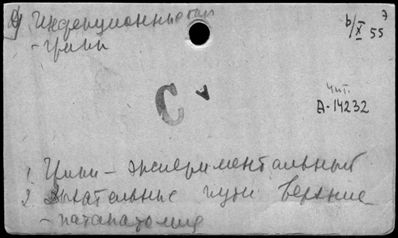 Инфекционные
7
- грипп
6/X 55
С
Чит.
А-14232
1 Грипп - экспериментальный
2 Дыхательные пути верхние
- патанатомия